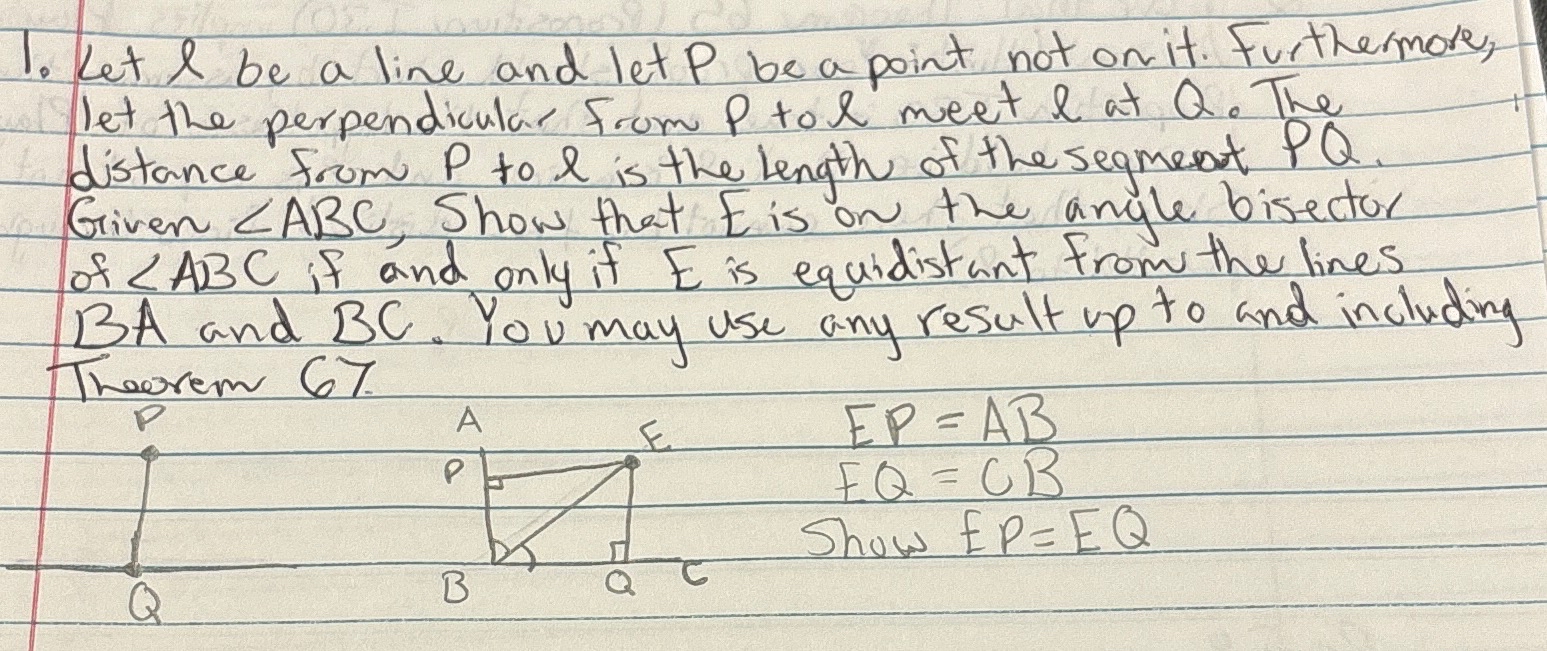 1. Let l be a line and let P be a point not on it. Furthermore,
let the perpendicular from P to l meet l at Q. The
distance from P to l is the length of the segment PQ.
Given ∠ABC, Show that E is on the angle bisector
of ∠ABC if and only if E is equidistant from the lines
BA and BC. You may use any result up to and including
Theorem 67.
P
A
E
EP = AB
P
EQ = CB
Show EP = EQ
Q
B
Q
C